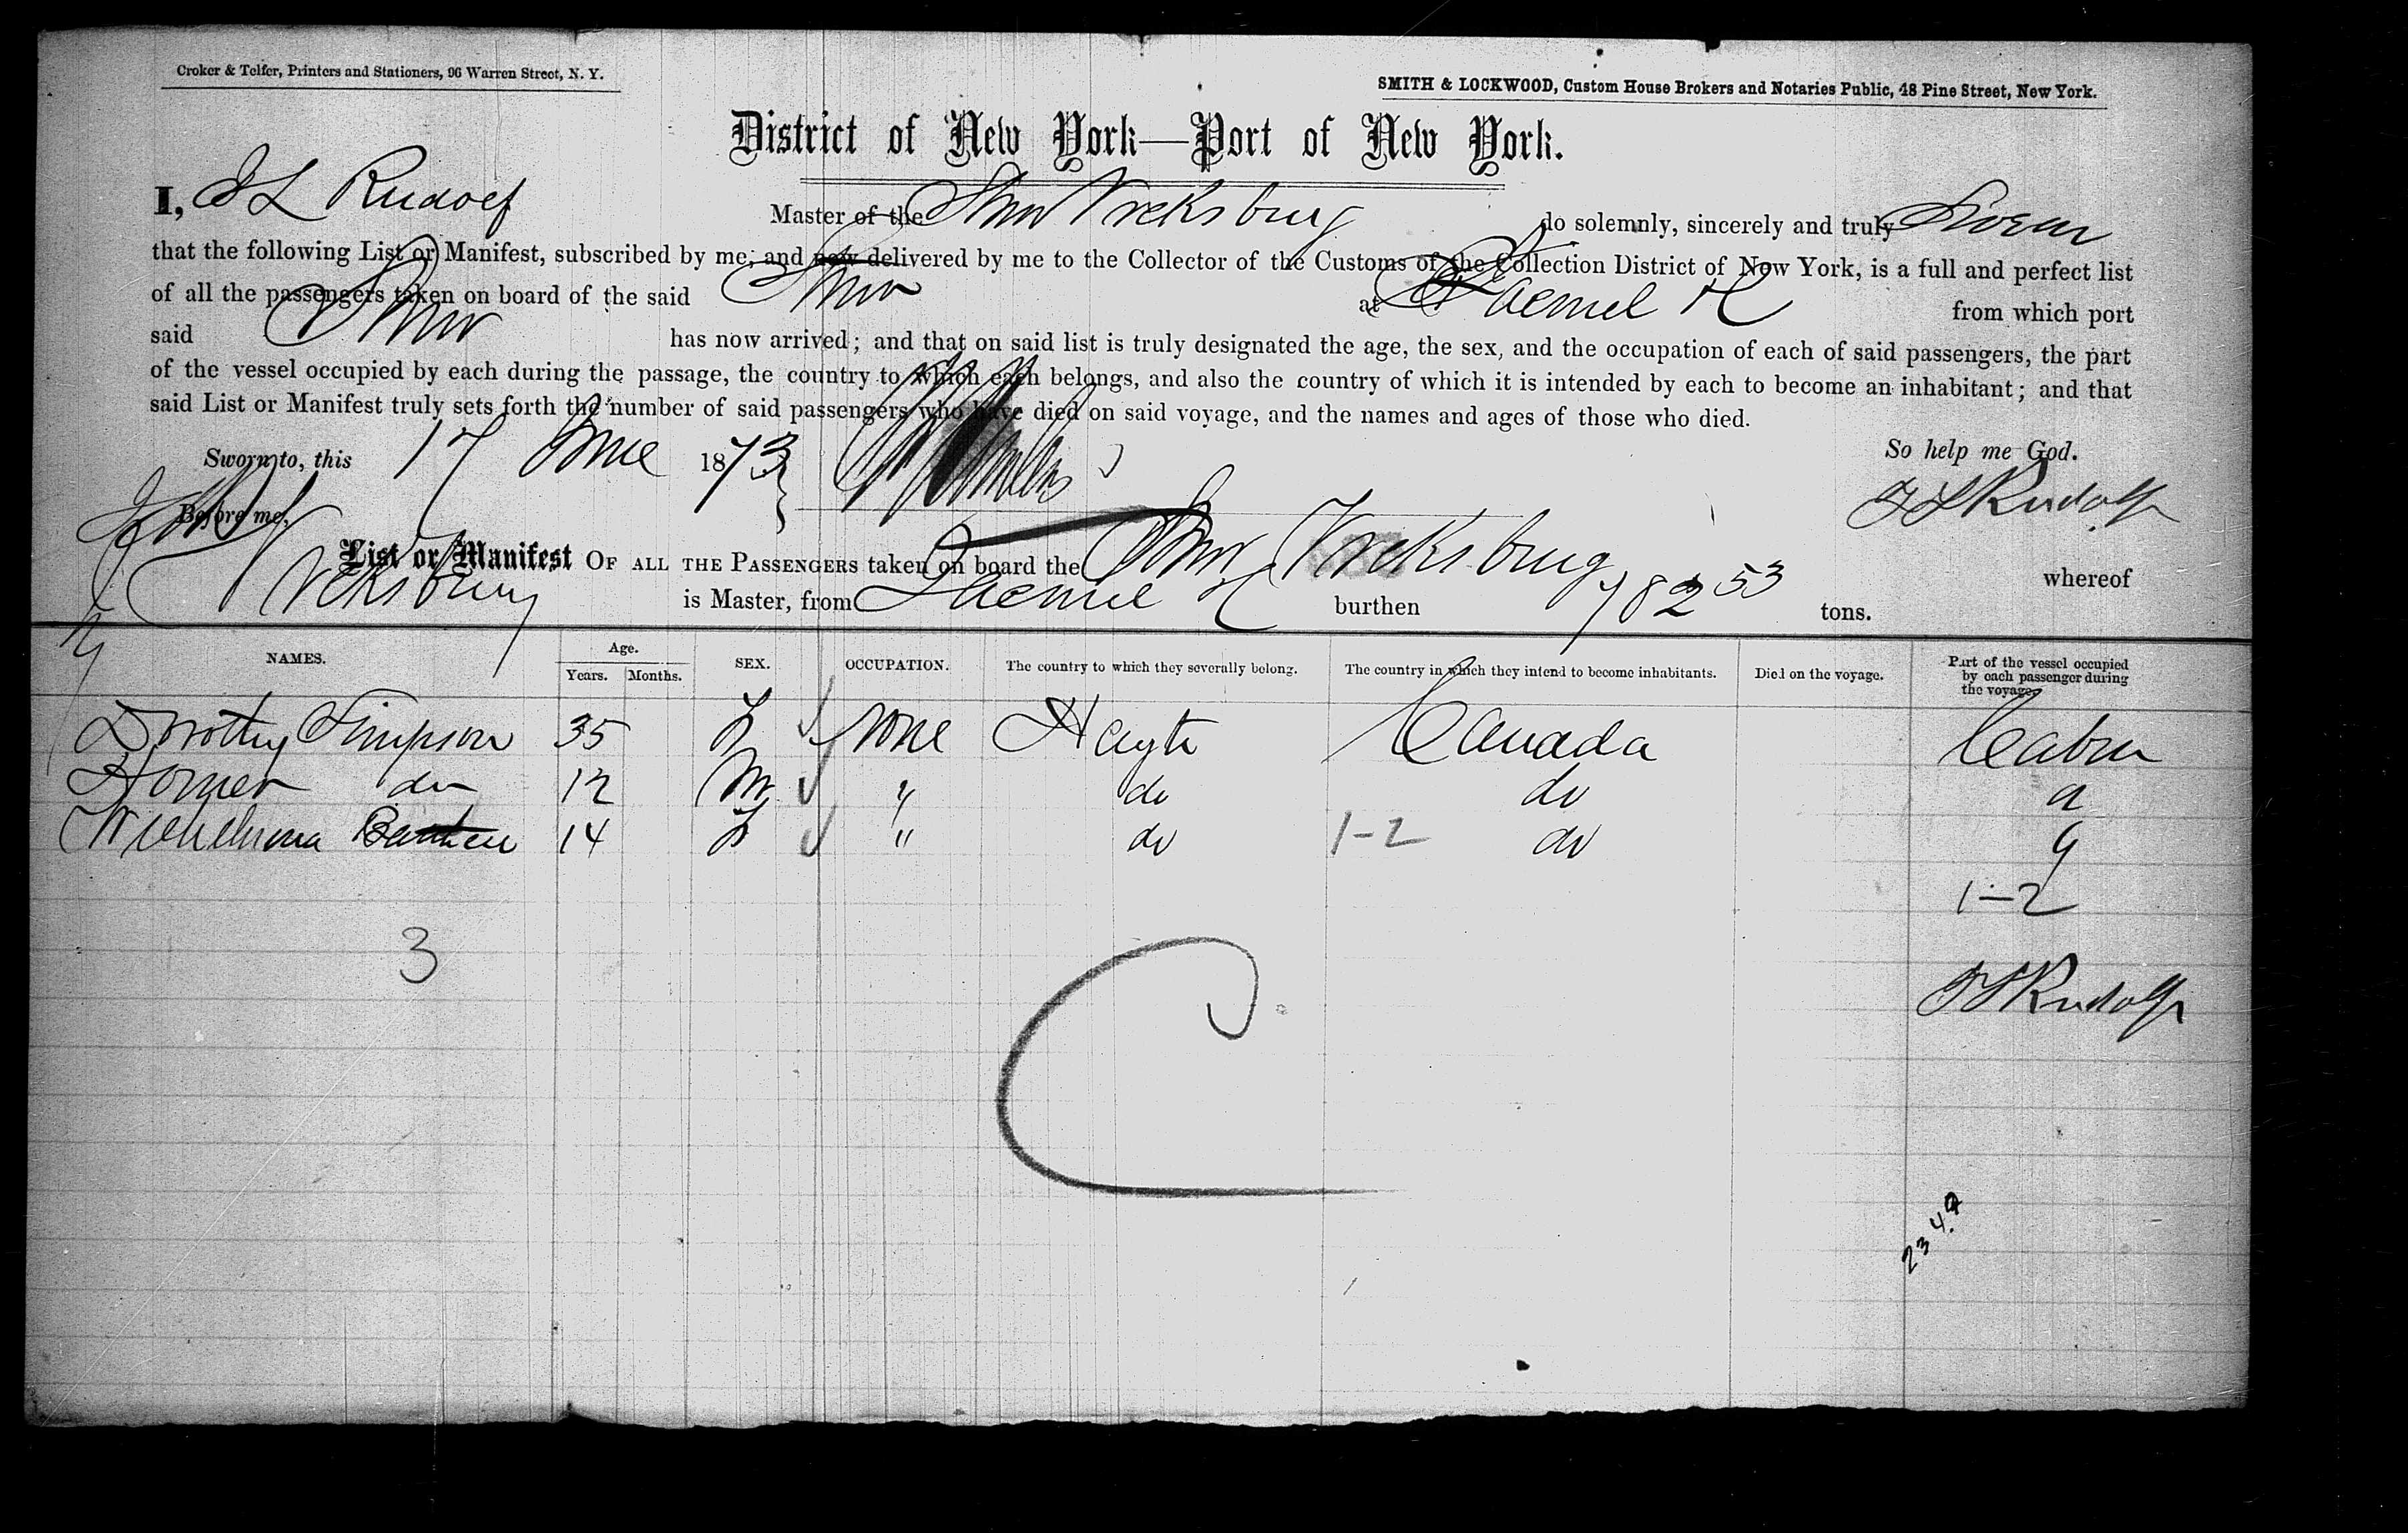 Croker & Telfer, Printers and Stationers, 96 Warren Street, N. Y.
SMITH & LOCKWOOD, Custom House Brokers and Notaries Public, 48 Pine Street, New York.
District of New York—Port of New York.
I, Rudolf Master of the Stmr Vicksburg do solemnly, sincerely and truly Swear
that the following List or Manifest, subscribed by me, and now delivered by me to the Collector of the Customs of the Collection District of New York, is a full and perfect list
of all the passengers taken on board of the said Stmr at Jacmel H from which port
said Stmr has now arrived; and that on said list is truly designated the age, the sex, and the occupation of each of said passengers, the part
of the vessel occupied by each during the passage, the country to which each belongs, and also the country of which it is intended by each to become an inhabitant; and that
said List or Manifest truly sets forth the number of said passengers who have died on said voyage, and the names and ages of those who died.
Sworn to, this 17 June 1873 So help me God.
Before me, Rudolf
List or Manifest OF ALL THE PASSENGERS taken on board the Stmr Vicksburg whereof
Vicksburg is Master, from Jacmel H burthen 782 53 tons.
NAMES. Age. Years. Months. SEX. OCCUPATION. The country to which they severally belong. The country in which they intend to become inhabitants. Died on the voyage. Part of the vessel occupied by each passenger during the voyage.
Dorothy Simpson 35 F none Hayti Canada Cabin
Homer do 12 M " do do
Wilhelmina 14 F " do 1-2 do
1-2
3
Rudolf